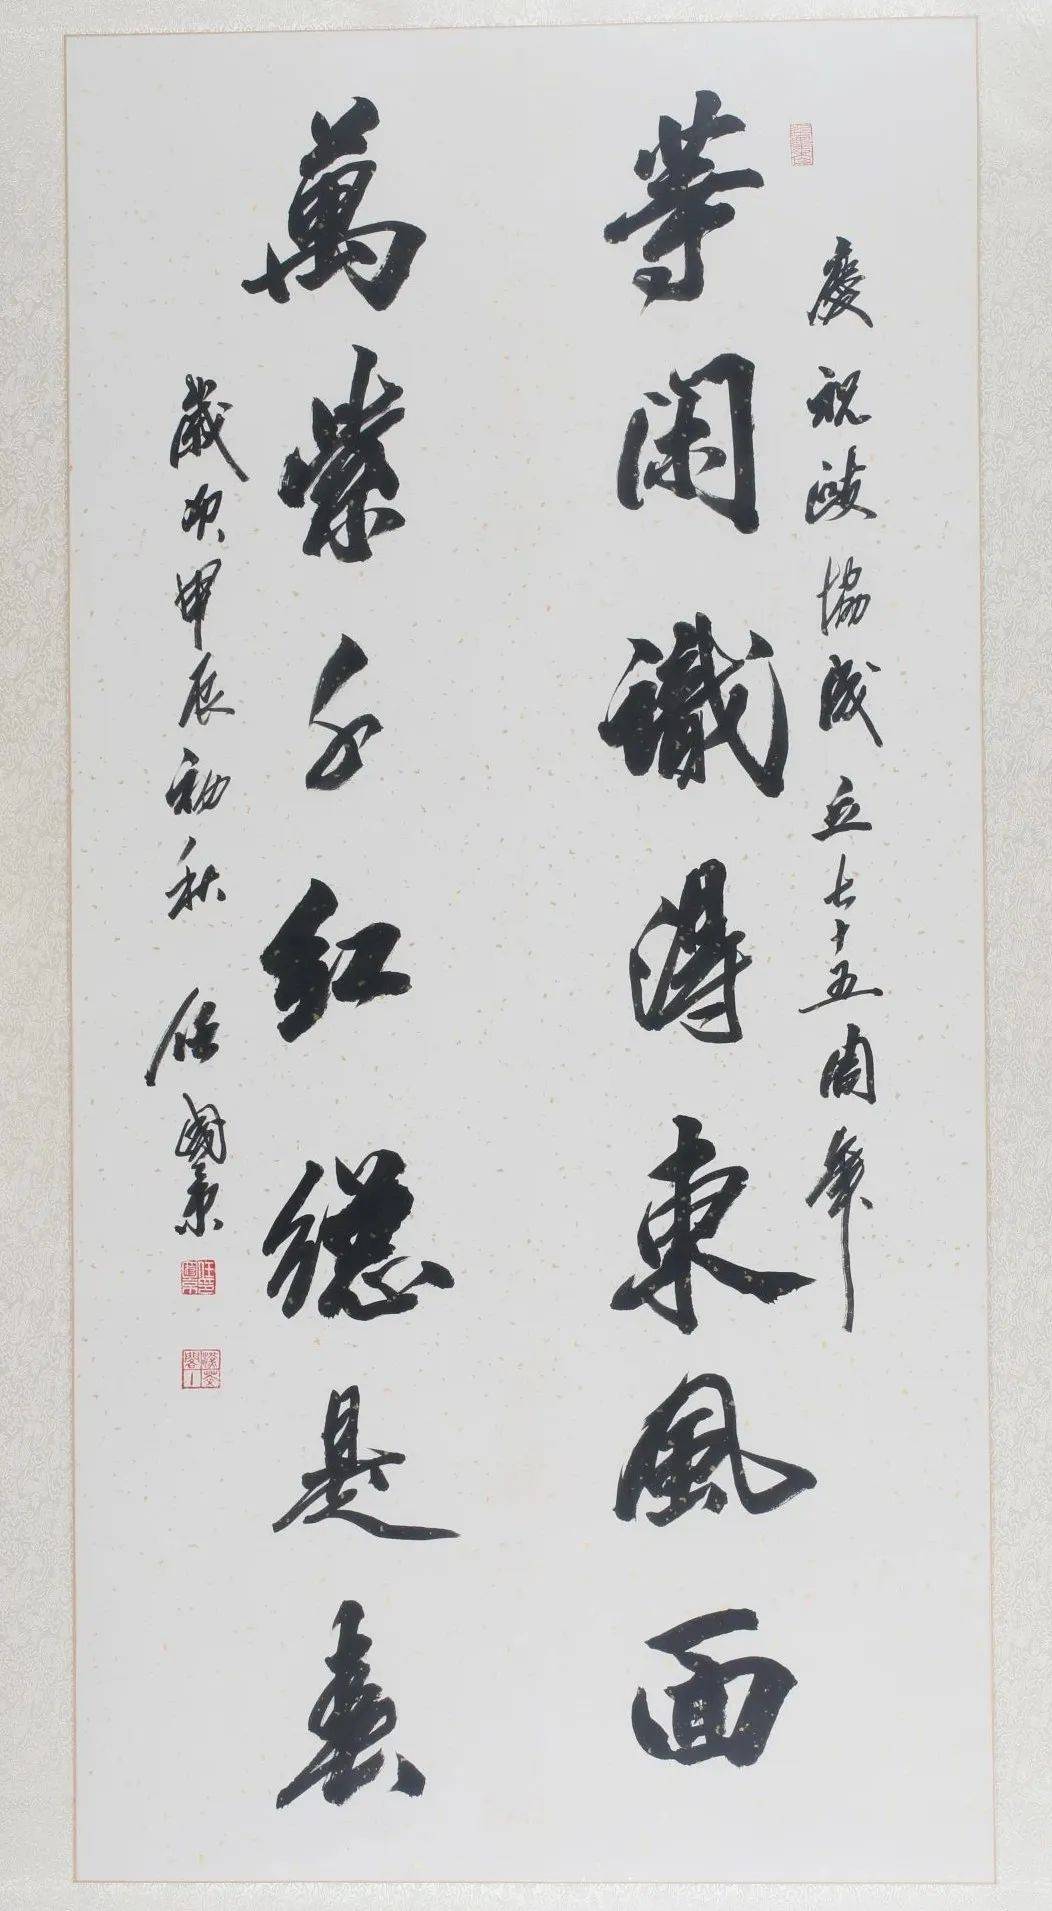 慶祝政協成立七十五周年
等閑識得東風面
萬紫千紅總是春
歲次甲辰初秋 任國